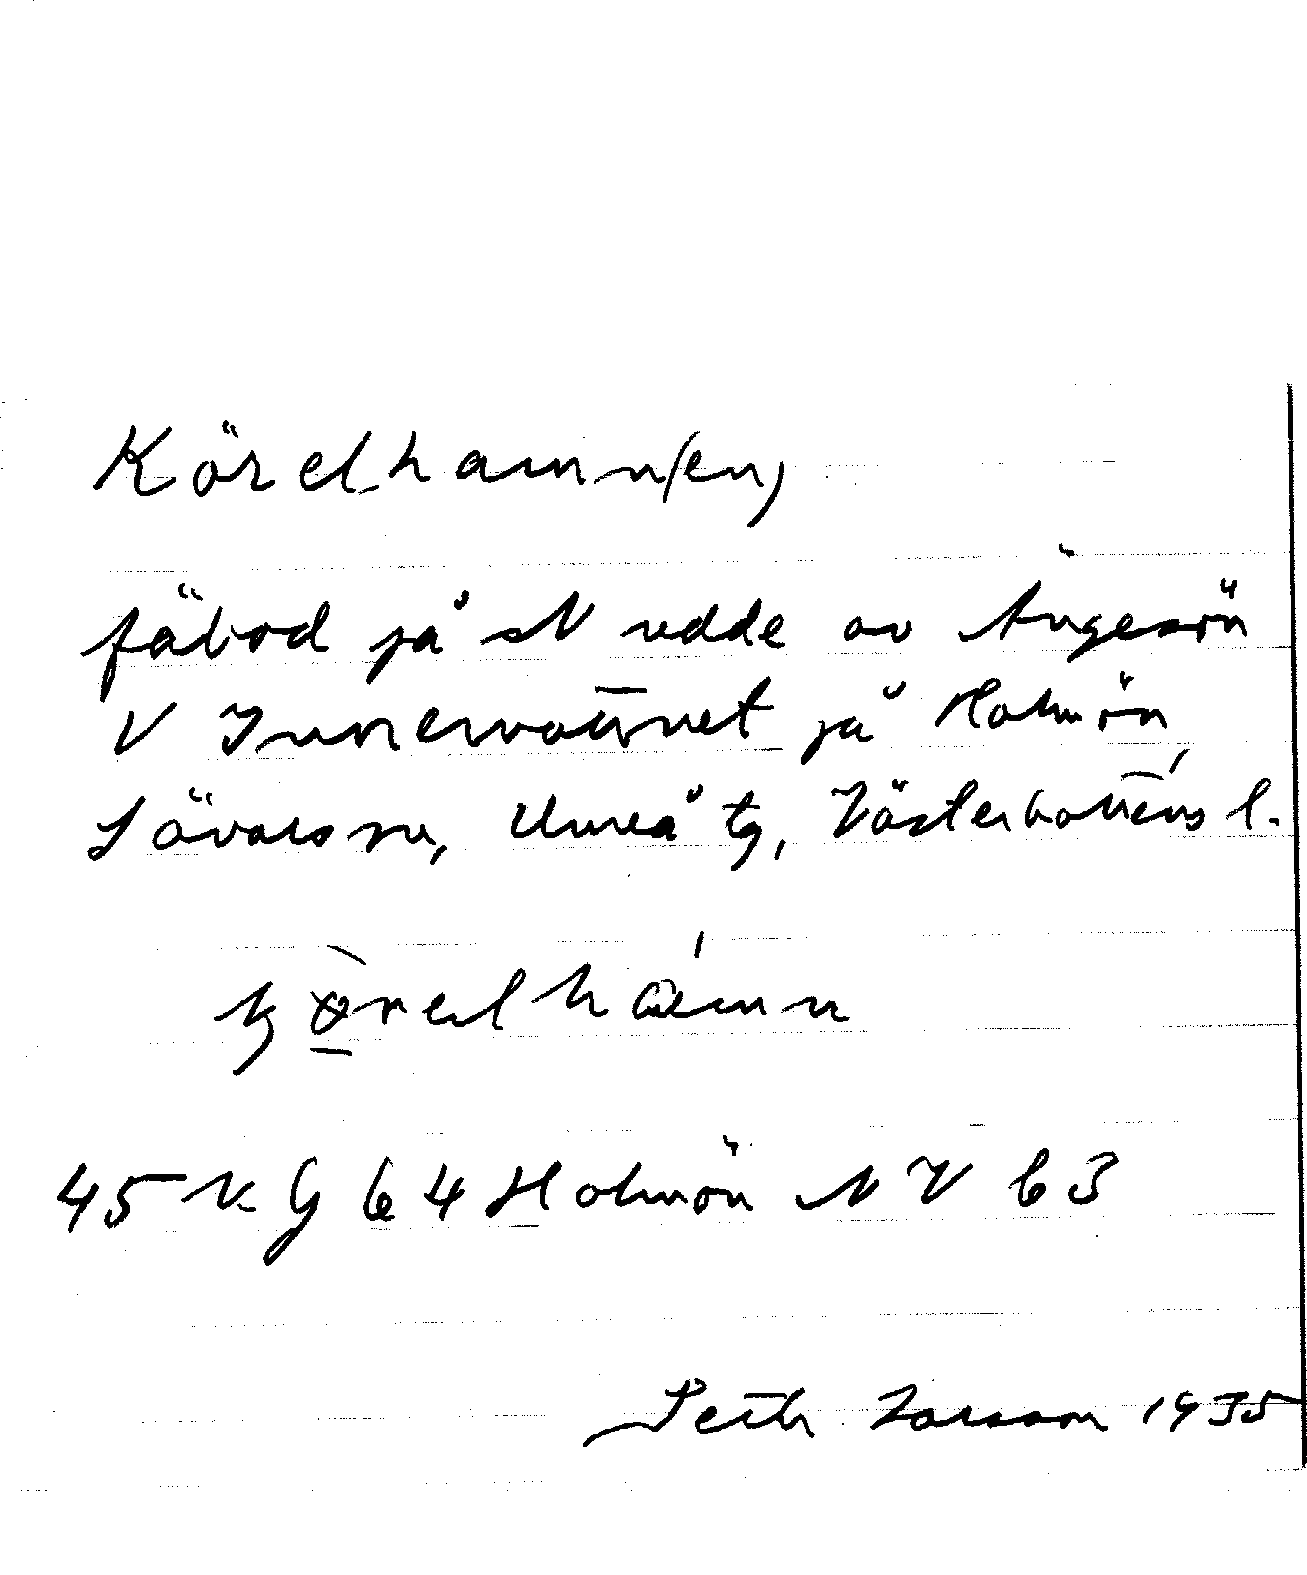 Körelhamn(en)
fäbod på N udde av Ängesön
V Innervattnet på Holmön,
Sävars sn, Umeå tg, Västerbottens l.
Holmön NV 63
Seth Larsson 1935